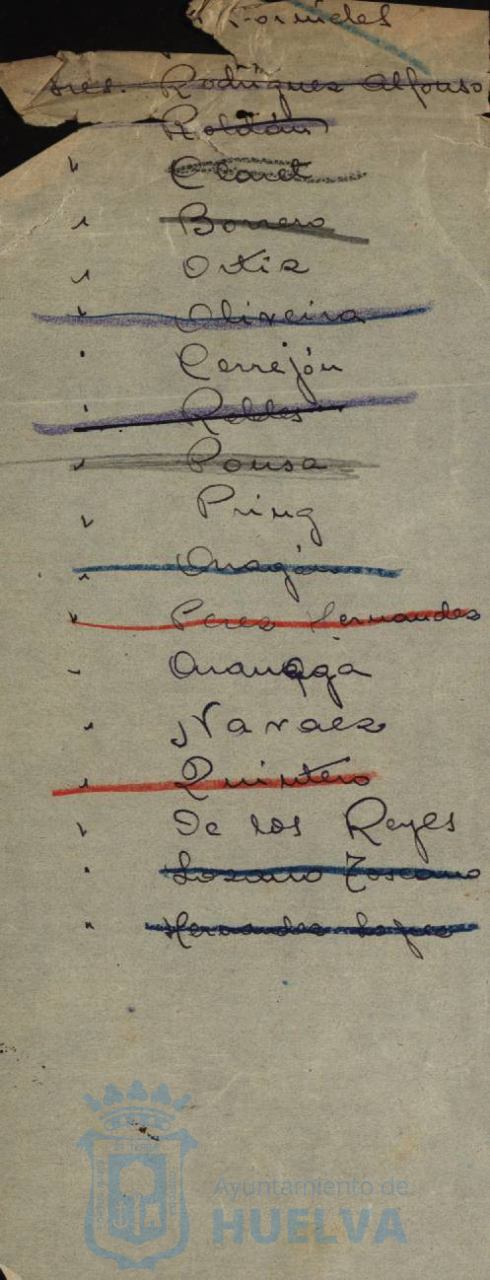 Sres. Rodriguez Alfonso
" Roldán
" Claret
" Borrero
" Ortiz
" Oliveira
" Cerrejón
" Robles
" Pousa
" Pring
" Aragón
" Perez Hernandez
" Aranaga
" Narvaez
" Quintero
" De los Reyes
" Lozano Toscano
" Hernandez Lopez
Ayuntamiento de
HUELVA